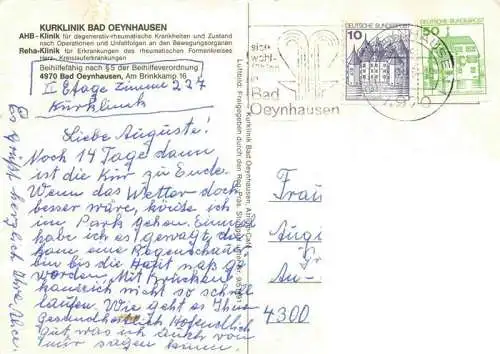 KURKLINIK BAD OEYNHAUSEN
AHB-Klinik für degenerativ-rheumatische Krankheiten und Zustand
nach Operationen und Unfallfolgen an den Bewegungsorganen
Reha-Klinik für Erkrankungen des rheumatischen Formenkreises
Herz-, Kreislauferkrankungen
Beihilfefähig nach §5 der Beihilfeverordnung
4970 Bad Oeynhausen, Am Brinkkamp 16
II Etage Zimmer 237
Kurklinik
Liebe Auguste!
Noch 14 Tage dann
ist die Kur zu Ende.
Wenn das Wetter doch
besser wäre, könnte ich
im Park gehen. Einmal
habe ich es gewagt, die
kam eine Regenschauer
bin bis die naß ge
worden. Mit Brücken
ich nicht so schnell
laufen. Wie geht es Ihnen
Gesundheitlich Hofentlich
gut was ich auch von
mir sagen kann.
Es grüßt herzlich Ihre
Kurklinik Bad Oeynhausen, Am
Luftbild: Freigegeben durch den Reg. Präs.
sich
wohl-
in
Bad
Oeynhausen
10
DEUTSCHE BUNDESPOST
50
DEUTSCHE BUNDESPOST
4970
Frau
4300